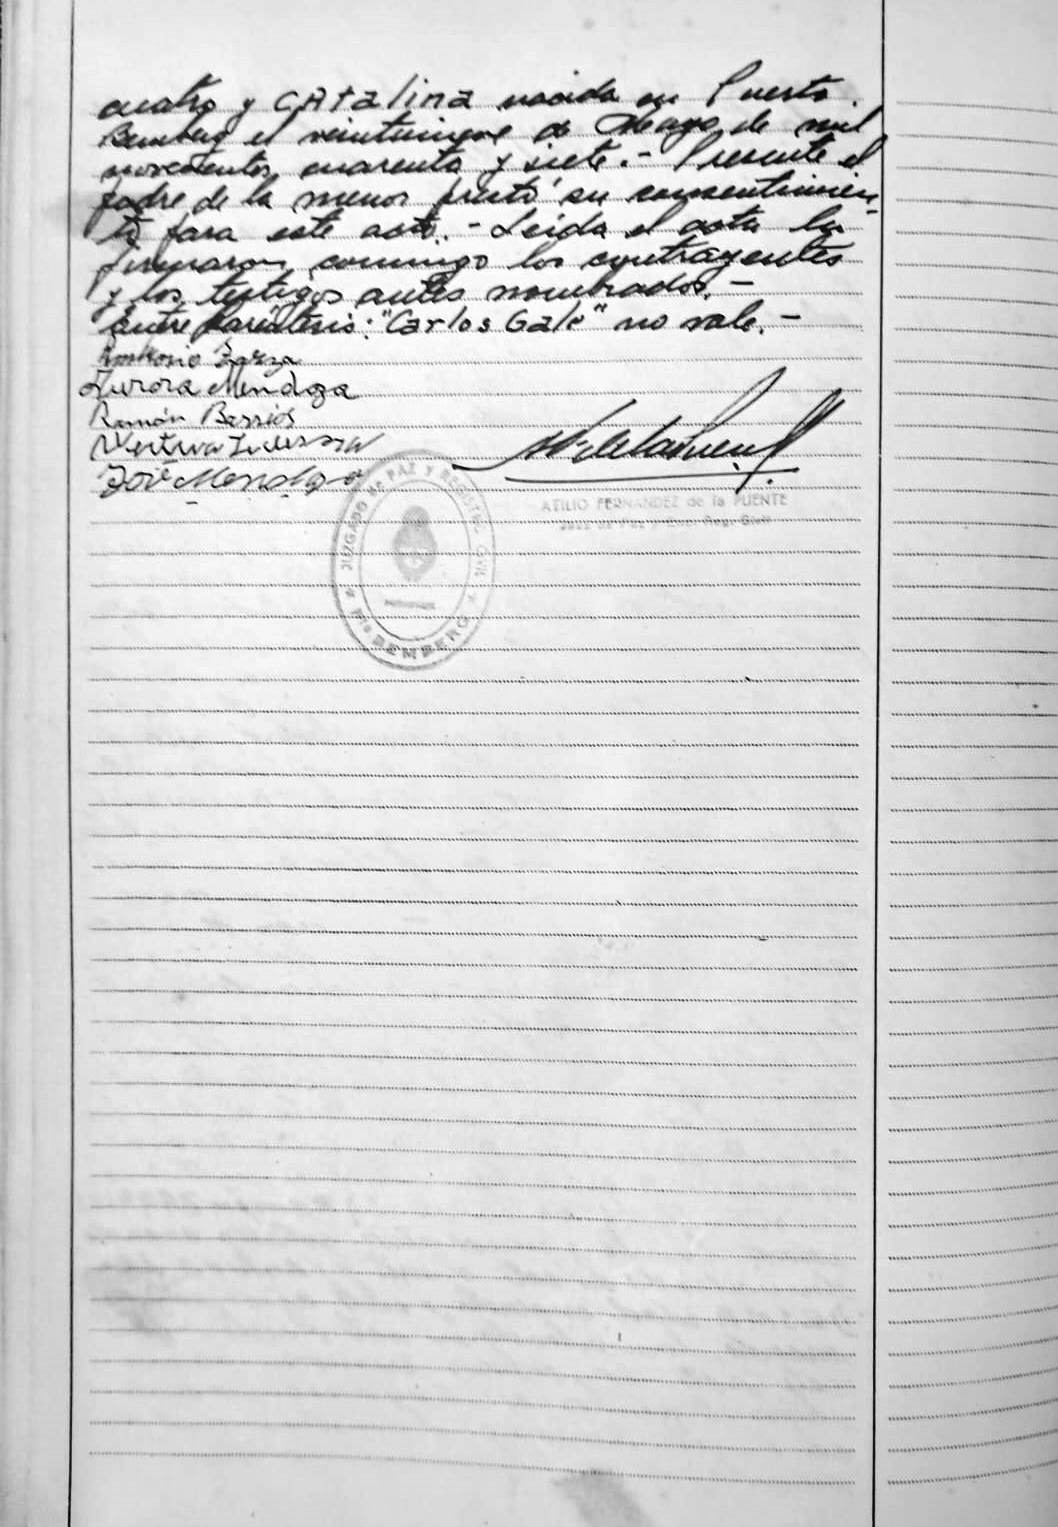 cuatro y CAtalina nacida en Puerto
Bemberg el veintinueve de Mayo de mil
novecientos cuarenta y siete.- Presente el
padre de la menor prestó su consentimien-
to para este acto.- Leída el acta la
firmaron conmigo los contrayentes
y los testigos antes nombrados.-
Entre paréntesis: "Carlos Galé" no vale.-
Antonio Zarza
Aurora Mendoza
Ramón Barrios
José Mendoza
ATILIO FERNANDEZ de la PUENTE
Juez de Paz y Enc. Reg. Civil
JUZGADO DE PAZ Y REGISTRO CIVIL
Pto BEMBERG